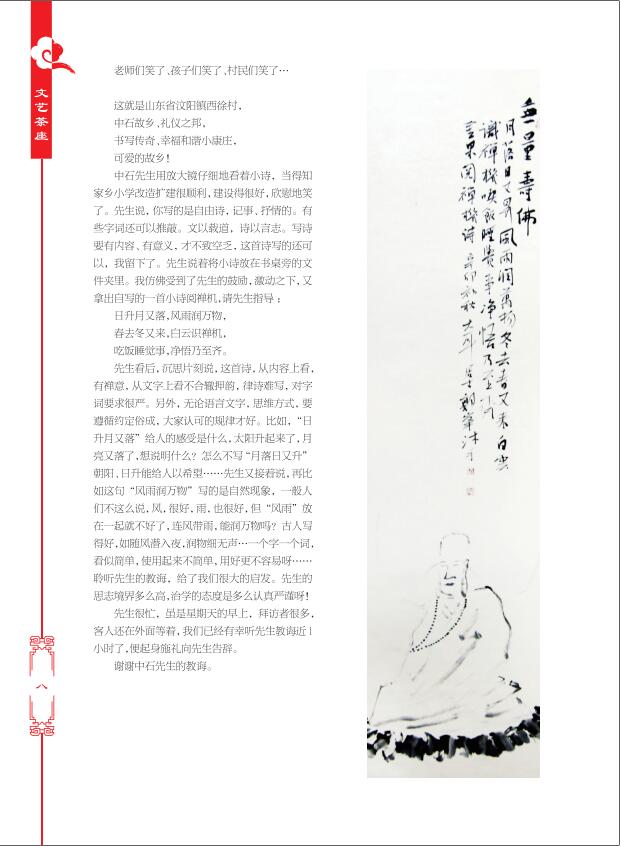 文艺茶座
老师们笑了、孩子们笑了、村民们笑了…
这就是山东省汶阳镇西徐村，
中石故乡、礼仪之邦，
书写传奇、幸福和谐小康庄，
可爱的故乡！
中石先生用放大镜仔细地看着小诗，当得知
家乡小学改造扩建很顺利，建设得很好，欣慰地笑
了。先生说，你写的是自由诗，记事、抒情的。有
些字词还可以推敲。文以载道，诗以言志。写诗
要有内容、有意义，才不致空乏，这首诗写的还可
以，我留下了。先生说着将小诗放在书桌旁的文
件夹里。我仿佛受到了先生的鼓励，激动之下，又
拿出自写的一首小诗阅禅机，请先生指导：
日升月又落，风雨润万物，
春去冬又来，白云识禅机，
吃饭睡觉事，净悟乃至齐。
先生看后，沉思片刻说，这首诗，从内容上看，
有禅意，从文字上看不合辙押韵，律诗难写，对字
词要求很严。另外，无论语言文字，思维方式，要
遵循约定俗成，大家认可的规律才好。比如，“日
升月又落”给人的感受是什么，太阳升起来了，月
亮又落了，想说明什么？怎么不写“月落日又升”
朝阳、日升能给人以希望……先生又接着说，再比
如这句“风雨润万物”写的是自然现象，一般人
们不这么说，风，很好，雨，也很好，但“风雨”放
在一起就不好了，连风带雨，能润万物吗？古人写
得好，如随风潜入夜，润物细无声…一个字一个词，
看似简单，使用起来不简单，用好更不容易呀……
聆听先生的教诲，给了我们很大的启发。先生的
思志境界多么高，治学的态度是多么认真严谨呀！
先生很忙，虽是星期天的早上，拜访者很多，
客人还在外面等着，我们已经有幸听先生教诲近1
小时了，便起身施礼向先生告辞。
谢谢中石先生的教诲。
八
无量寿佛
月落日又昇風雨潤萬物冬去春又来白雲
識禅機喫飯睡覺事净悟乃至齐